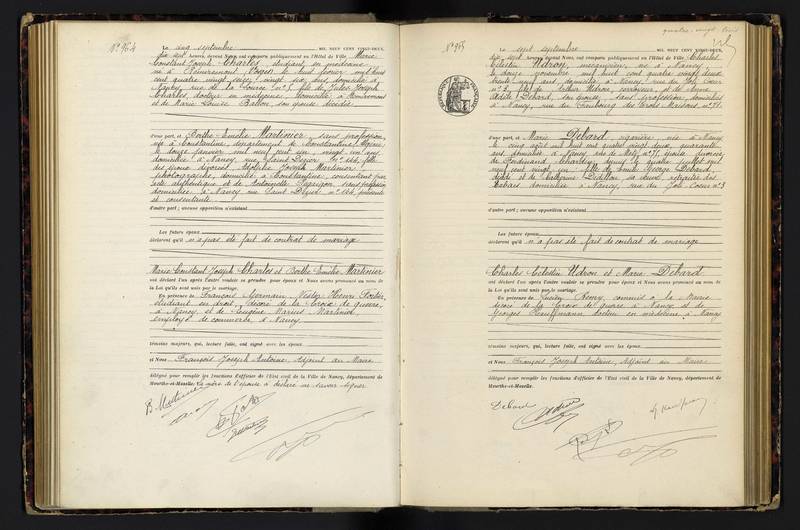 N° 954
Le cinq septembre MIL NEUF CENT VINGT-DEUX,
dix sept heures, devant Nous, ont comparu publiquement en l'Hôtel de Ville : Marie
Constant Joseph Charles, étudiant en médecine
né à Remiremont Vosges le huit février mil huit
cent quatre vingt seize, vingt six ans, domicilié à
Nancy, rue de la Source n° 5, fils de Jules Joseph
Charles, docteur en médecine, domicilié à Remiremont
et de Marie Louise Ballon, son épouse décédée
d'une part, et Berthe Emélie Martinier, sans profession,
née à Constantine, département de Constantine Algérie,
le douze janvier mil neuf cent un, vingt un ans,
domiciliée à Nancy, rue Saint Dizier n° 124, fille
des époux divorcés, Adolphe Joseph Martinier,
photographe, domicilié à Constantine, consentant par
acte authentique et de Antoinette sans profession
domiciliée à Nancy rue Saint Dizier n° 124, présente
et consentante
d'autre part ; aucune opposition n'existant
Les futurs époux
déclarent qu'il n'a pas été fait de contrat de mariage
Marie Constant Joseph Charles et Berthe Emélie Martinier
ont déclaré l'un après l'autre vouloir se prendre pour époux et Nous avons prononcé au nom de
la Loi qu'ils sont unis par le mariage.
En présence de François Germain Nestor Henri
étudiant en droit, décoré de la Croix de guerre,
à Nancy et de Eugène Marius Martinod,
employé de commerce, à Nancy
témoins majeurs, qui, lecture faite, ont signé avec les époux
et Nous François Joseph Antoine, Adjoint au Maire
délégué pour remplir les fonctions d'officier de l'Etat civil de la Ville de Nancy, département de
Meurthe-et-Moselle. La mère de l'épouse a déclaré ne savoir signer
B. Martinier
quatre-vingt trois
N° 955
Le sept septembre MIL NEUF CENT VINGT-DEUX,
dix sept heures, devant Nous, ont comparu publiquement en l'Hôtel de Ville : Charles
Célestin Udron, mécanicien, né à Nancy
le douze novembre mil huit cent quatre vingt deux,
trente neuf ans, domicilié à Nancy, rue du Joli Cœur
n° 3, fils de Arthur Udron, corroyeur, et de Anne
Adèle Debard, son épouse, sans profession, domiciliés
à Nancy, rue du Faubourg des Trois Maisons, n° 71.
d'une part, et Marie Debard, née à Nancy
le cinq août mil huit cent quatre vingt deux, quarante
ans, domiciliée à Nancy, rue de Metz n° 71, épouse divorcée
de Ferdinand depuis le juillet mil
neuf cent vingt un, fille de Emile George Debard,
décédé et de Catherine sa veuve, retraitée des
tabacs domiciliée à Nancy, rue du Joli Cœur n° 3
d'autre part ; aucune opposition n'existant
Les futurs époux
déclarent qu'il n'a pas été fait de contrat de mariage
Charles Célestin Udron et Marie Debard
ont déclaré l'un après l'autre vouloir se prendre pour époux et Nous avons prononcé au nom de
la Loi qu'ils sont unis par le mariage.
En présence de Lucien Remy, commis à la Mairie
décoré de la Croix de Guerre à Nancy et de
Georges docteur en médecine, à Nancy
témoins majeurs, qui, lecture faite, ont signé avec les époux
et Nous François Joseph Antoine, Adjoint au Maire
délégué pour remplir les fonctions d'officier de l'Etat civil de la Ville de Nancy, département de
Meurthe-et-Moselle.
Debard